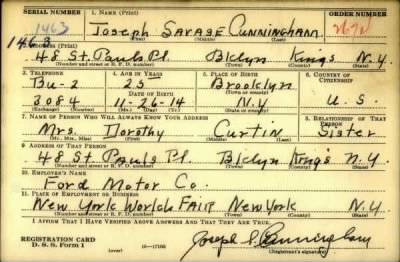 SERIAL NUMBER 1. NAME (Print) ORDER NUMBER
1463 Joseph Savage Cunningham.
(First) (Middle) (Last)
1463
(Print)
48 St. Pauls Pl. Bklyn Kings N.Y.
(Number and street or R. F. D. number) (Town) (County) (State)
3. TELEPHONE 4. AGE IN YEARS 5. PLACE OF BIRTH 6. COUNTRY OF CITIZENSHIP
Bu-2 25 Brooklyn
DATE OF BIRTH (Town or county)
3084 11-26-14 N.Y U.S.
(State or country)
7. NAME OF PERSON WHO WILL ALWAYS KNOW YOUR ADDRESS 8. RELATIONSHIP OF THAT PERSON
Mrs. Dorothy Curtin Sister
(Mr., Mrs., Miss) (First) (Middle) (Last)
9. ADDRESS OF THAT PERSON
48 St. Pauls Pl. Bklyn King's N.Y.
(Number and street or R. F. D. number) (Town) (County) (State)
10. EMPLOYER'S NAME
Ford Motor Co.
11. PLACE OF EMPLOYMENT OR BUSINESS
New York Worlds Fair New York N.Y.
(Number and street or R. F. D. number) (Town) (County) (State)
I AFFIRM THAT I HAVE VERIFIED ABOVE ANSWERS AND THAT THEY ARE TRUE.
REGISTRATION CARD
D. S. S. Form 1 (over) Joseph S. Cunningham